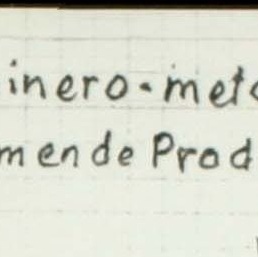 inero-meta
mende Prod